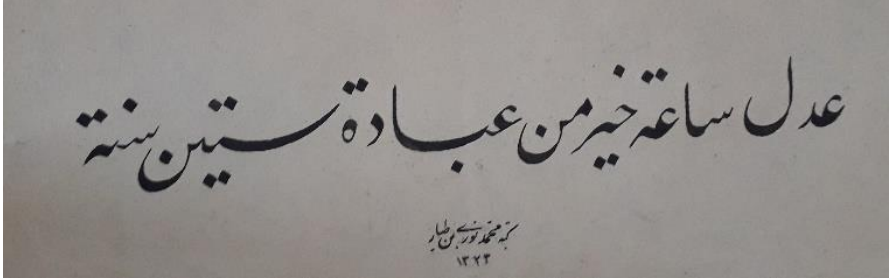 عدل ساعة خير من عبادة ستين سنة
كتبه محمد نوري بن
١٣٢٣